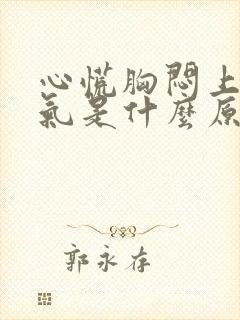 心慌胸悶上
氣是什麼原
郭永存